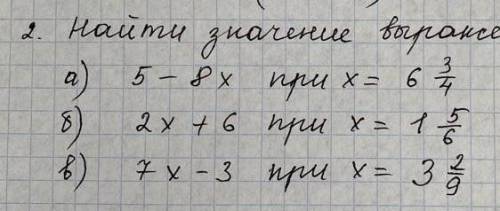 2. Найти значение выраже
а) 5 - 8x при x = 6 3/4
б) 2x + 6 при x = 1 5/6
в) 7x - 3 при x = 3 2/9